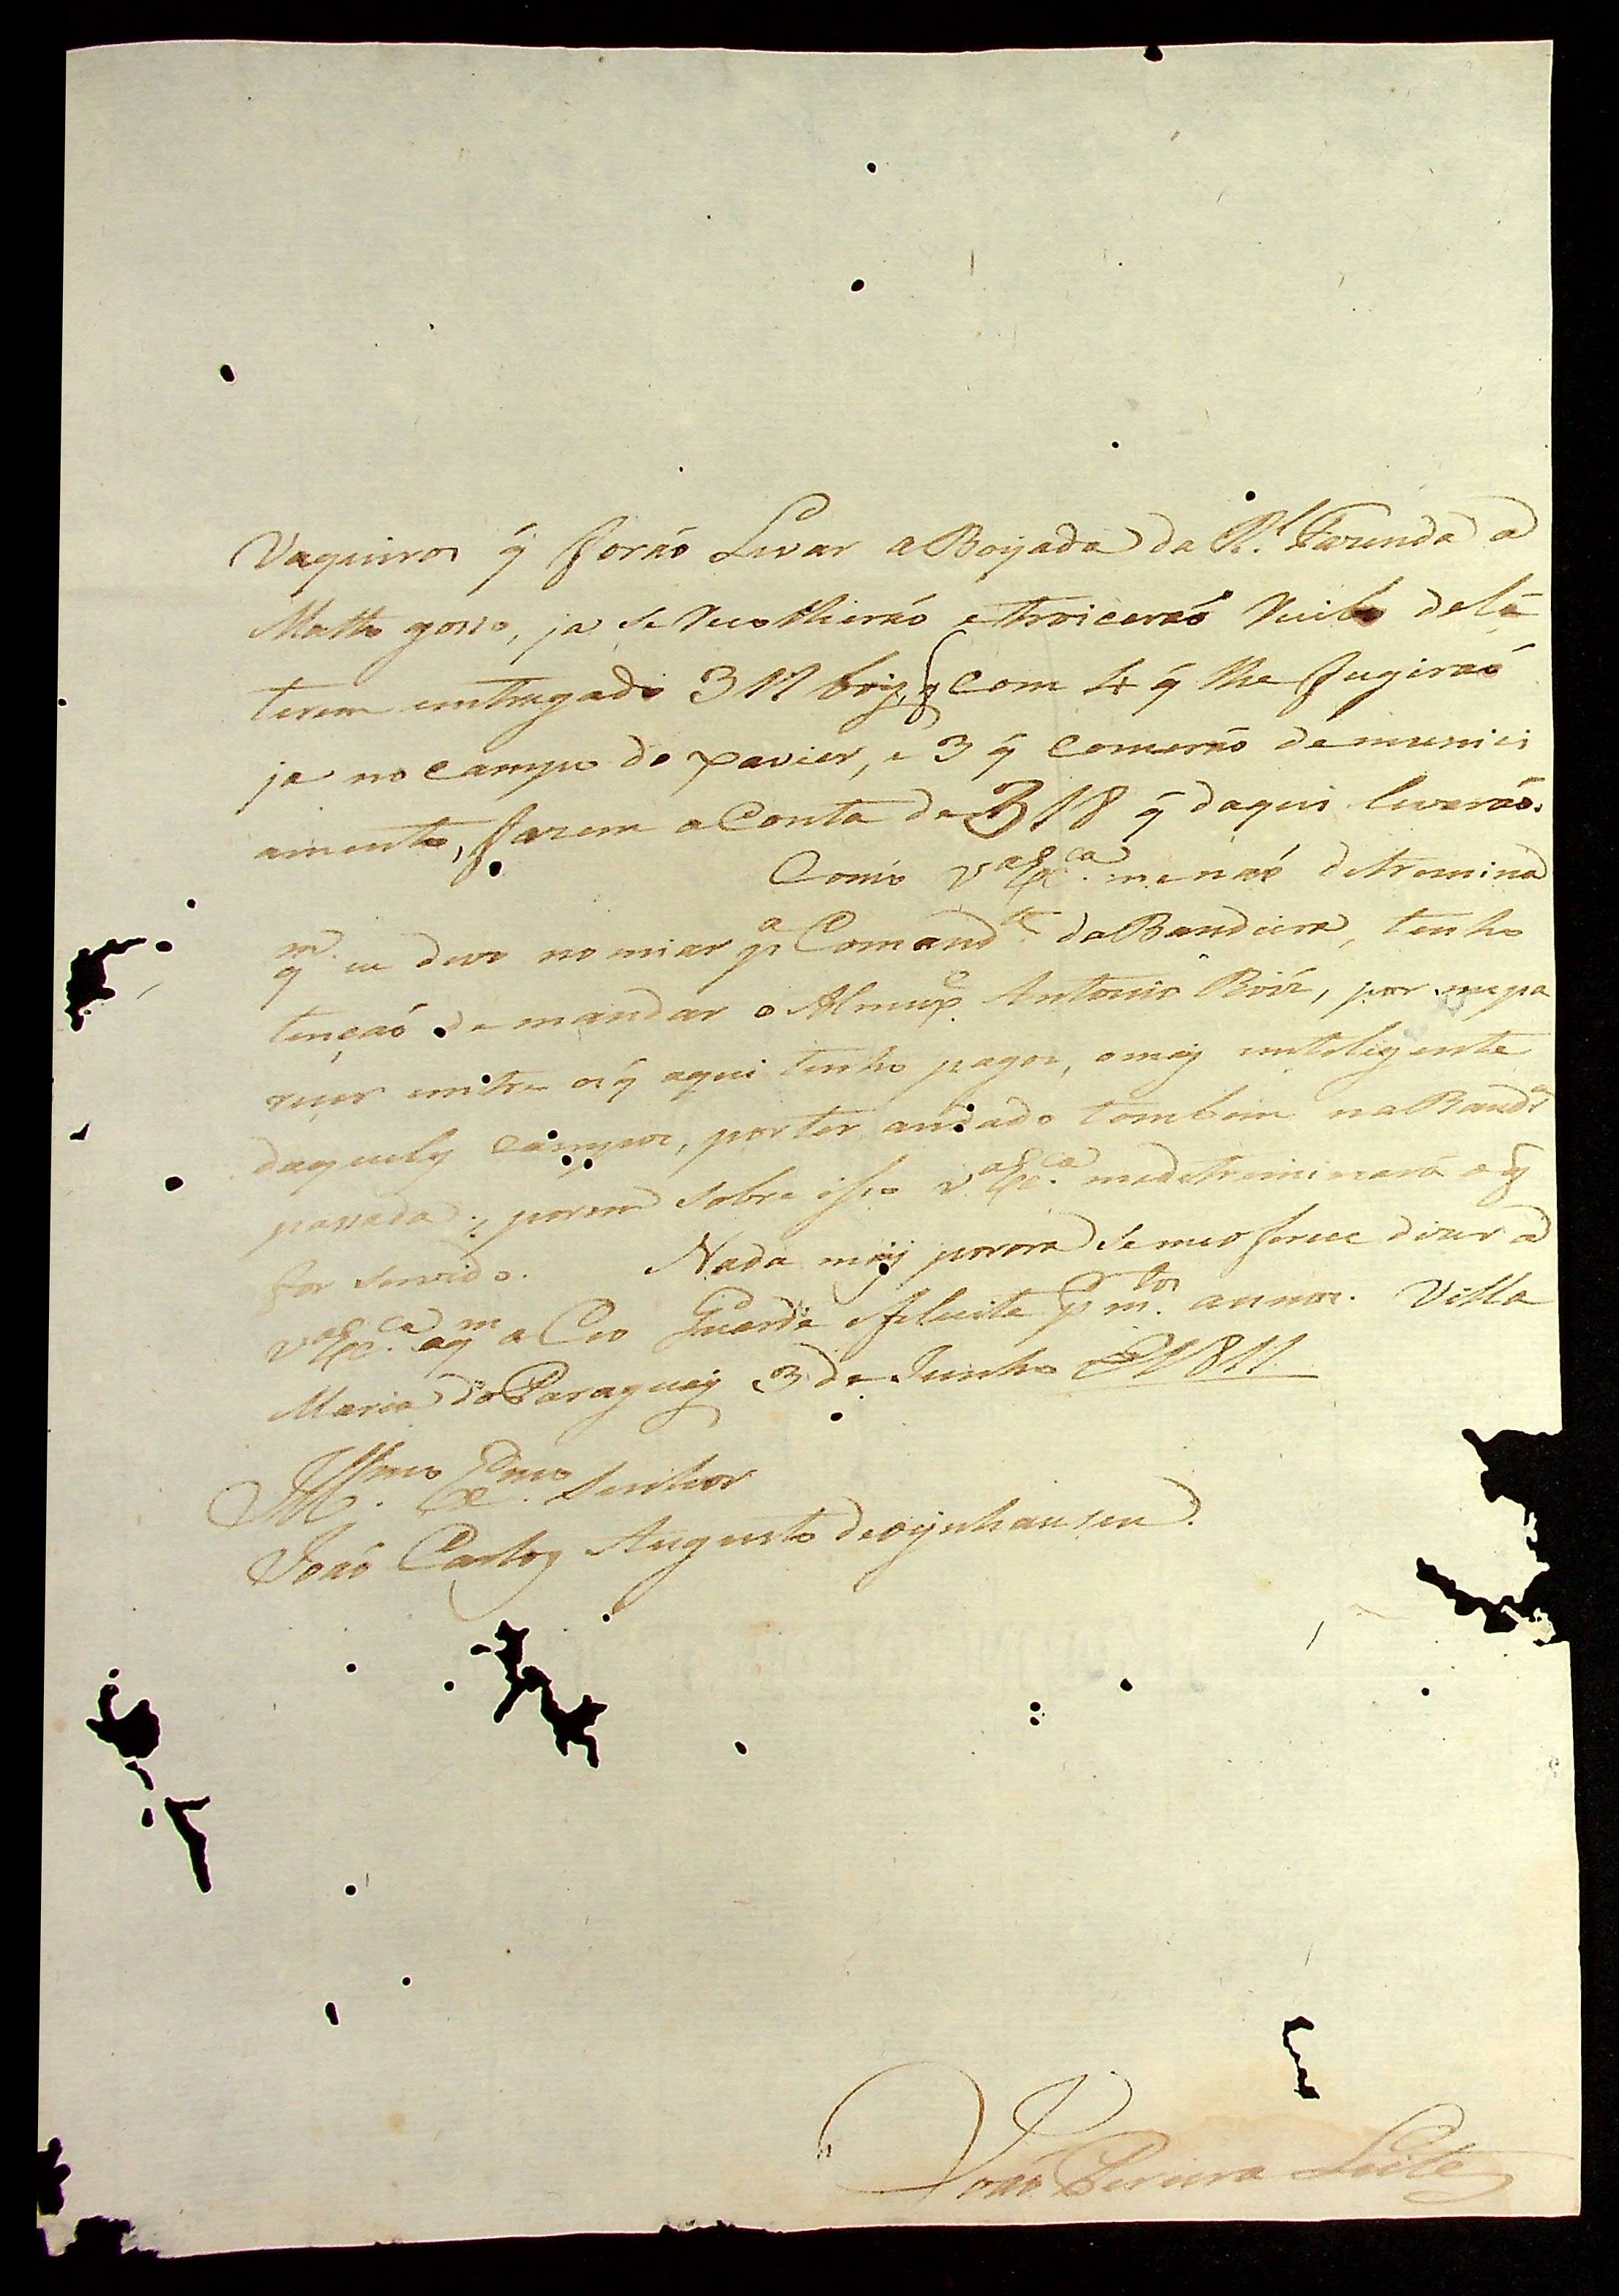 Vaqueiros q̃ foraõ Levar a Boyada da R.l Fazenda a
Matto groso, ja se Recolheraõ e troiceraõ Recibo de lá
terem entregado 311 boiz, q̃ com 4 q̃ lhe fugiraõ
ja no campo do xavier, e 3 q̃ comeraõ de munici
amento, fazem a Conta de 318 q̃ daqui levaraõ.
Como V.a Ex.ca me naõ detremina
q.m eu devo nomiar p.a Comand.te da Bandeira, tenho
tençaõ de mandar o Almux.e Antonio Roiz, por me pa
recer entre os q̃ aqui tenho pagos, o maiz inteligente
daquelez campos, por ter andado tambem na Band.a
passada; porem sobre isso V.a Ex.ca me detreminará o q̃
for servido. Nada maiz porora se me oferece dizer a
V.a Ex.ca a q.m o Ceo Guarde e felecite p.r m.tos annos. Villa
Maria do Paraguay 3 de Junho de 1811
Ill.mo Ex.mo Senhor
Joaõ Carloz Augusto de oyenhausen.
Joaõ Pereira Leite